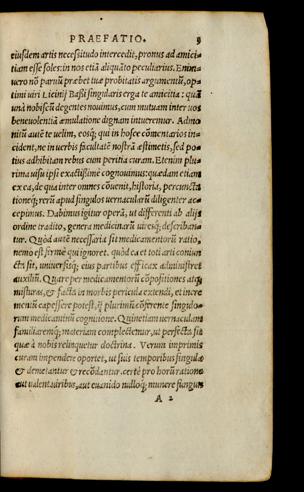 PRAEFATIO. 3
eiusdem artis necessitudo intercedit, pronus ad amici-
tiam esse soles: in nos etiã aliquãto peculiarius. Enim-
uero nõ parũ præbet tuæ probitatis argumentũ, op-
timi uiri Licinij Bassi singularis erga te amicitia: quẽ
unà nobiscũ degentes nouimus, cum mutuam inter uos
beneuolentiã æmulatione dignam intueremur. Admo
nitũ autẽ te uelim, eosq; qui in hosce cõmentarios in-
cident, ne in uerbis facultatẽ nostrã æstimetis, sed po-
tius adhibitam rebus cum peritia curam. Etenim plu-
rima usu ipsi exactissimè cognouimus: quædam etiam
ex ea, de qua inter omnes cõuenit, historia, percuncta
tioneq; rerũ apud singulos uernacularũ diligenter ac-
cepimus. Dabimus igitur operã, ut differenti ab alijs
ordine tradito, genera medicinarũ uiresq; describan-
tur. Quòd autẽ necessaria sit medicamentorũ ratio,
nemo est firmè qui ignoret. quòd ea et toti arti coniun
cta sit, uniuersisq; eius partibus efficax administret
auxiliũ. Quare per medicamentorũ cõpositiones atq;
misturas, & facta in morbis pericula extendi, et incre
mentũ capessere potest, si plurimũ cõferente singulo-
rum medicaminũ cognitione. Quinetiam uernaculam
familiaremq; materiam complectemur, ut perfecta sit
quæ à nobis relinquetur doctrina. Verum imprimis
curam impendere oportet, ut suis temporibus singula
& demetantur & recõdantur. certè pro horũ ratione
aut ualent uiribus, aut euanido nulloq; munere fungun
A 2